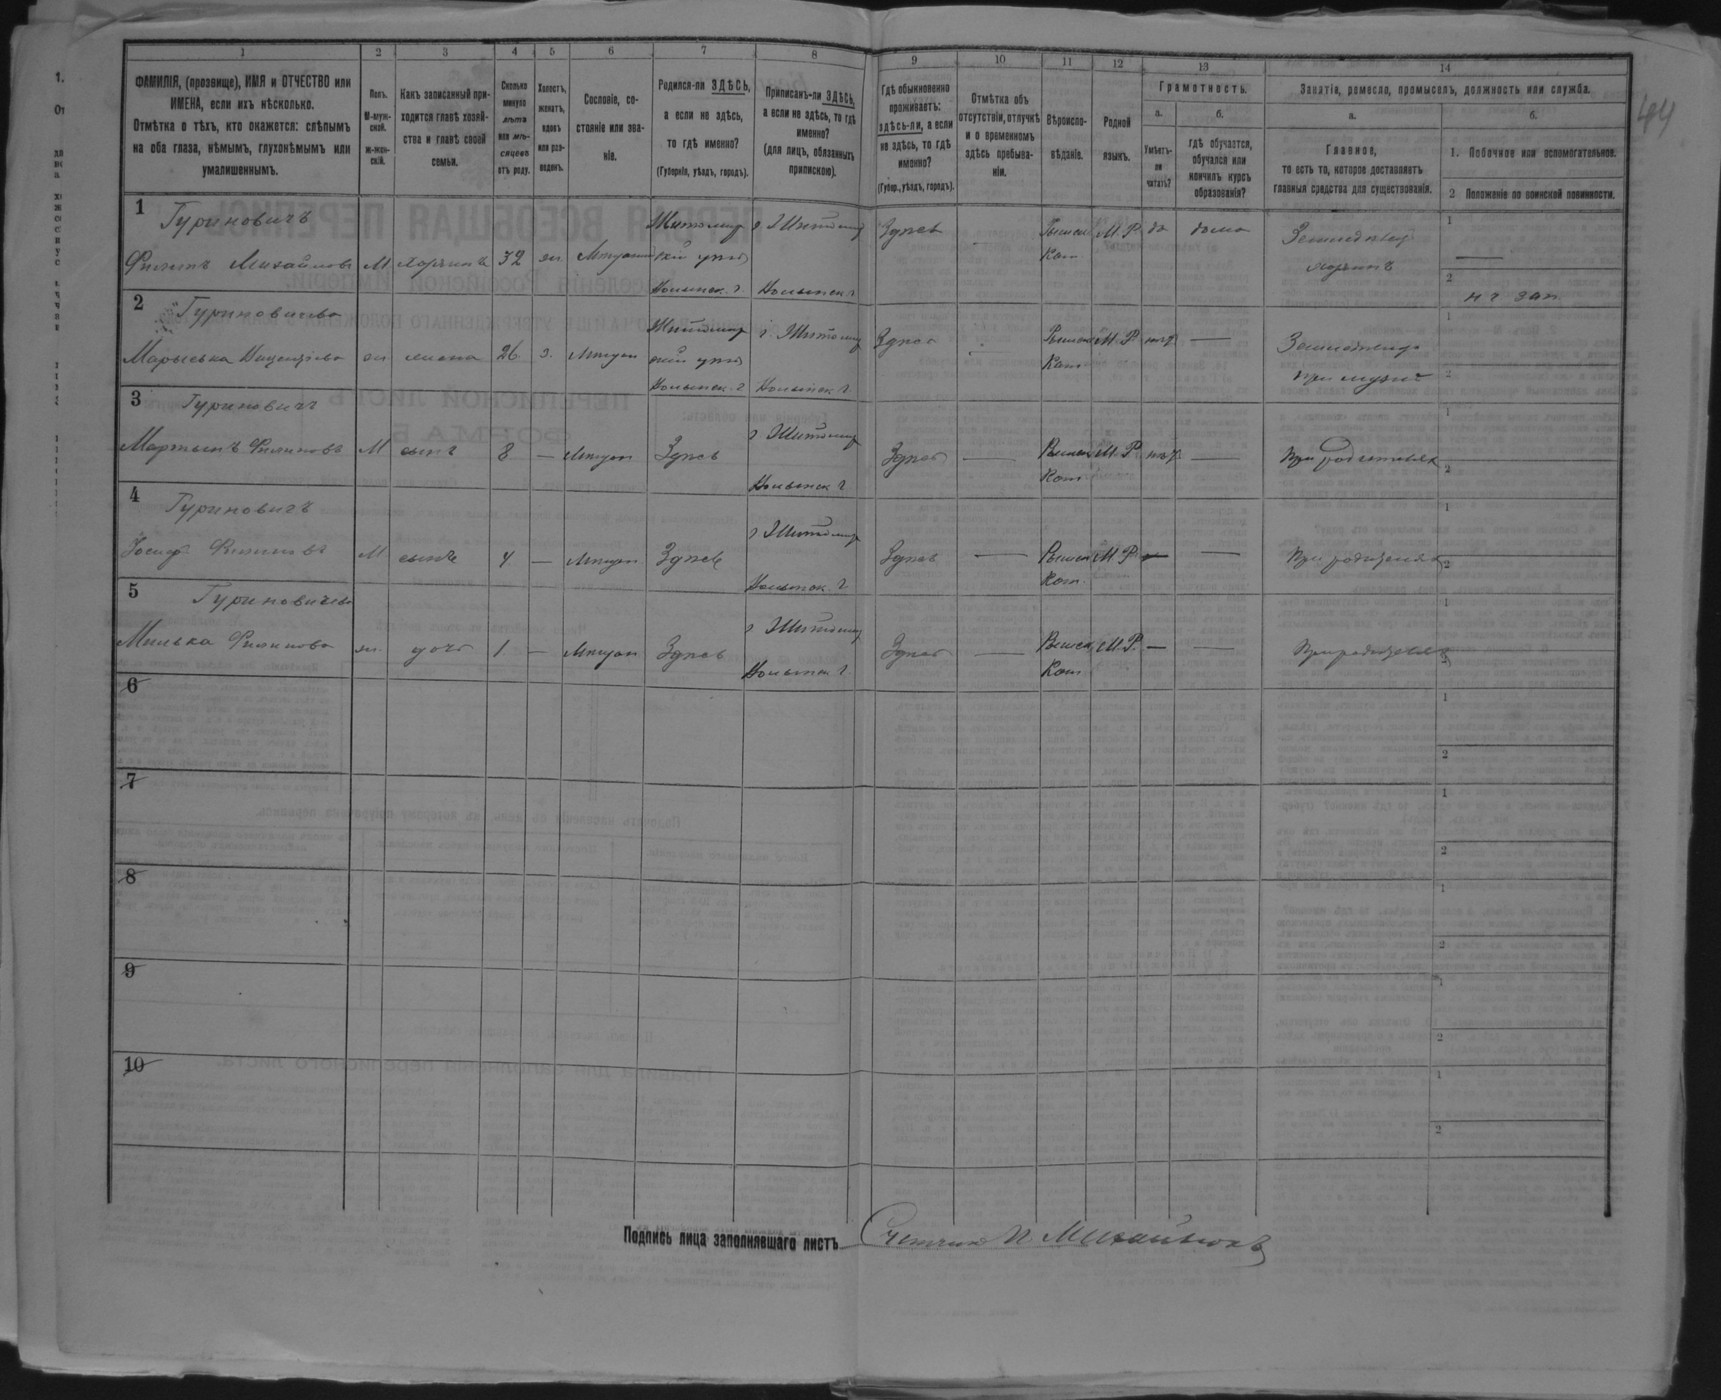 1 2 3 4 5 6 7 8 9 10 11 12 13 14
ФАМИЛІЯ, (прозвище), ИМЯ и ОТЧЕСТВО или
ИМЕНА, если ихъ нѣсколько.
Отмѣтка о тѣхъ, кто окажется: слѣпымъ
на оба глаза, нѣмымъ, глухонѣмымъ или
умалишеннымъ.
Полъ.
М-муж-
ской.
ж-жен-
скій.
Какъ записанный при-
ходится главѣ хозяй-
ства и главѣ своей
семьи.
Сколько
минуло
лѣтъ
или мѣ-
сяцевъ
отъ роду.
Холостъ,
женатъ,
вдовъ
или раз-
веденъ.
Сословіе, со-
стояніе или зва-
ніе.
Родился-ли ЗДѢСЬ,
а если не здѣсь,
то гдѣ именно?
(Губернія, уѣздъ, городъ).
Приписанъ-ли ЗДѢСЬ,
а если не здѣсь, то гдѣ
именно?
(для лицъ, обязанныхъ
припискою).
Гдѣ обыкновенно
проживаетъ:
здѣсь-ли, а если
не здѣсь, то гдѣ
именно?
(Губер., уѣздъ, городъ).
Отмѣтка объ
отсутствіи, отлучкѣ
и о временномъ
здѣсь пребыва-
ніи.
Вѣроиспо-
вѣданіе.
Родной
языкъ.
Грамотность.
а.
Умѣетъ-
ли
читать?
б.
гдѣ обучается,
обучался или
кончилъ курсъ
образованія?
Занятія, ремесло, промыселъ, должность или служба.
а.
Главное,
то есть то, которое доставляетъ
главныя средства для существованія.
б.
1. Побочное или вспомогательное.
2 Положеніе по воинской повинности.
44
1
Гуриновичъ
Филипъ Михайловъ М хозяинъ 32 ж Мещанинъ
Житомир
скій уѣздъ
Волынск. г.
г Житомир
Волынск. г
Здѣсь
Римск
Кат
М. Р. да дома
Земледѣлец
хозяинъ
1
2
2
Гуриновичева
Марыська жена 26 з. Мещан
Житомир
скій уѣздъ
Волынск. г
г Житомир
Волынск г
Здѣсь
Римск
Кат
М. Р. нѣт —
Земледѣлец
при мужѣ
1
2
3
Гуриновичъ
Мартынъ Филиповъ М сынъ 8 — Мещан Здѣсь
г Житомир
Волынск г
Здѣсь —
Римск
Кат
М. Р. нѣт —
При родителях
1
2
4
Гуриновичъ
Іосиф Филиповъ М сынъ 4 — Мещан Здѣсь
г Житомир
Волынск. г
Здѣсь —
Римск
Кат.
М. Р. — —
При родителях
1
2
5
Гуриновичева
Милька Филипова ж. дочь 1 — Мещан Здѣсь
г Житомир
Волынск г
Здѣсь —
Римск
Кат
М. Р. — —
При родителях
1
2
6
1
2
7
1
2
8
1
2
9
1
2
10
1
2
Подпись лица заполнявшаго листъ Счетчикъ П Михайлюкъ